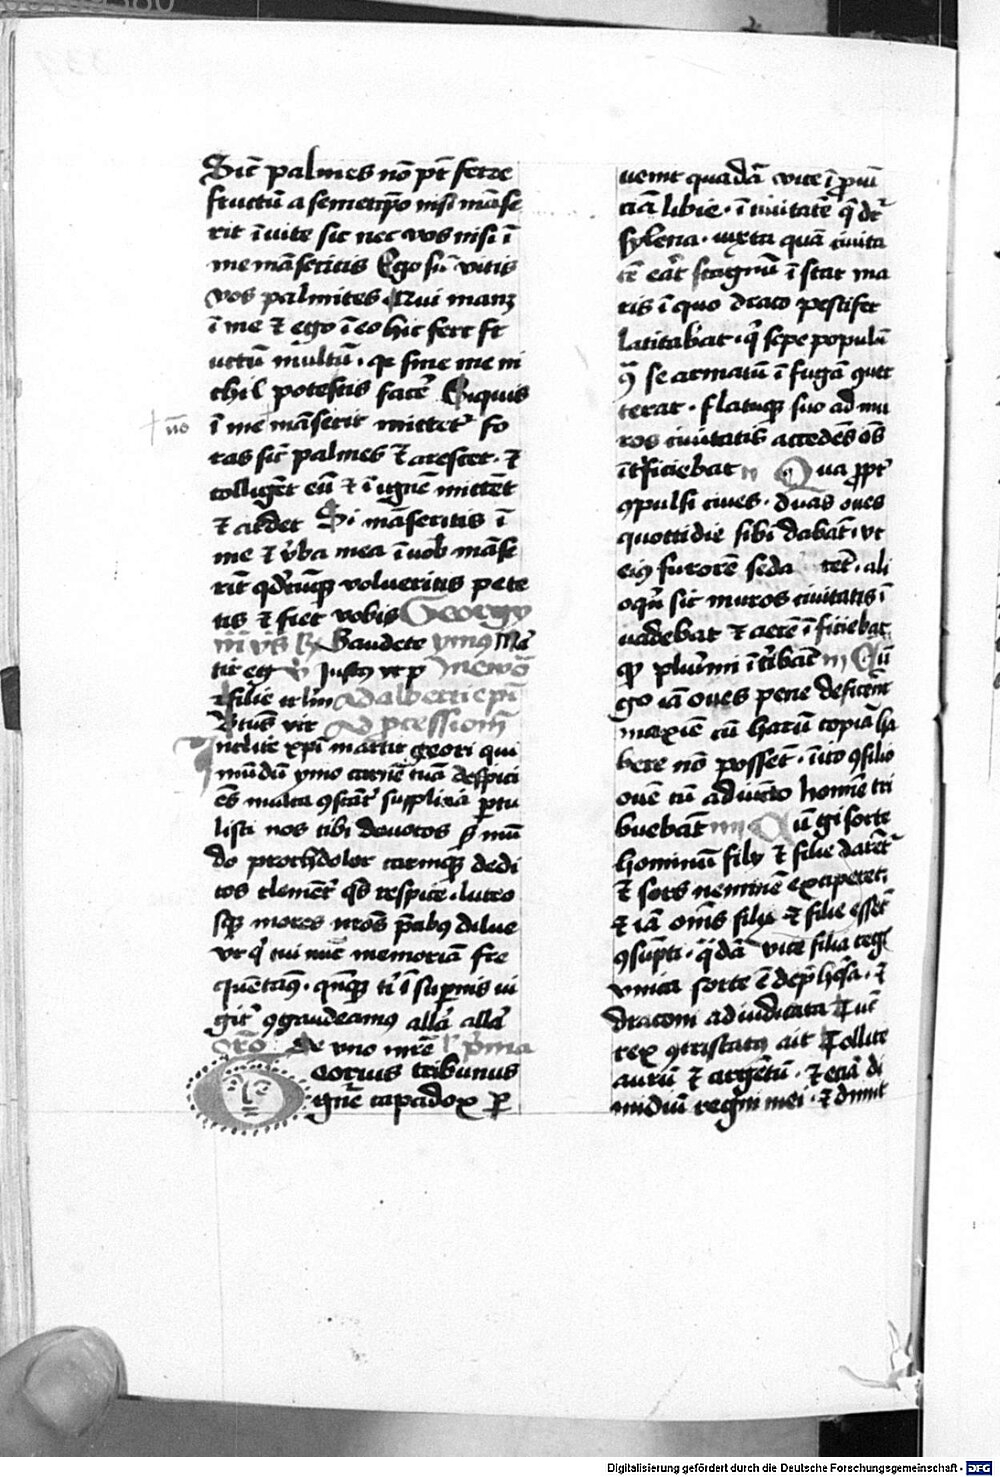 Sic̄ palmes nō pt̄ ferre
fructū a semetip̄o nisi māse
rit ī uite sic nec vos nisi ī
me māseritis Ego sū vitis
vos palmites Qui manꝫ
ī me ⁊ ego ī eo hic fert fr
uctū multū · qr sine me ni
chil potestis facer̄ Siquis
† nō
ī me māserit mittet᷑ fo
ras sic̄ palmes ⁊ arescet · ⁊
colligēt eū ⁊ ī ignē mittēt
⁊ ardet Si māseritis ī
me ⁊ v̄ba mea ī vob̄ māse
rīt qd̄cūqꝫ volueritis pete
tis ⁊ fiet vobis Georgy
Gaudete
Justꝯ vt p
filie
Adalberti ep̄i
Btūs vir Ad p̄cessionē
Inclite xp̄i martir geori qui
mūdū ymo carnē tuā despici
ēs multa ꝯstāt᷑ supplicia ꝑtu
listi nos tibi deuotos ꝫ mū
do prochdolor carniqꝫ dedi
tos clemēt᷑ qs̄ respice · luteo
sqꝫ mores nr̄os p̄cibꝯ dilue
vt qͥ tui nūc memoriā fre
quētamꝯ · qn̄qꝫ tͥ ī suꝑnis iu
git᷑ ꝯgaudeamꝯ all̄a all̄a
Orō de vno mr̄e
Georius tribunus
ꝑ
uenit quadā vice ī ꝓuī
ciā libie · ī ciuitatē q̄ dr̄
sylena · iuxta quā ciuita
tē erat̄ stagnū ī star ma
ris ī quo draco pestifer
latitabat · qͥ sepe populū
ꝯ se armatū ī fugā ꝯuer
terat · flatuqꝫ suo ad mu
ros ciuitatis accedēs oēs
īficiebat ıı Qua ꝓpt᷑
ꝯpulsi ciues · duas oues
quottidie sibi dabāt · vt
eiꝯ furorē seda tēt · ali
oqn̄ sic muros ciuitatis ī
uadebat ⁊ aerē īficiebat
qꝫ plurimi īt̄ibāt ııı Cū
go iā oues pene deficerēt
maxīe cū harū copiā ha
bere nō possēt · īito ꝯsilio
ouē cū adiūcto homīe tri
buebāt ıııı Cū gi sorte
hominū filij ⁊ filie darēt᷑
⁊ sors neminē exciperet ·
⁊ iā om̄s filij ⁊ filie essēt
ꝯsūpti · q̄dā vice filia regi
vnica sorte ē dep̄hēsa · ⁊
draconi adiudicata Tūc
rex ꝯtristatꝯ ait Tollite
aurū ⁊ argētū · ⁊ etiā di
midiū regni mei · ⁊ dimit